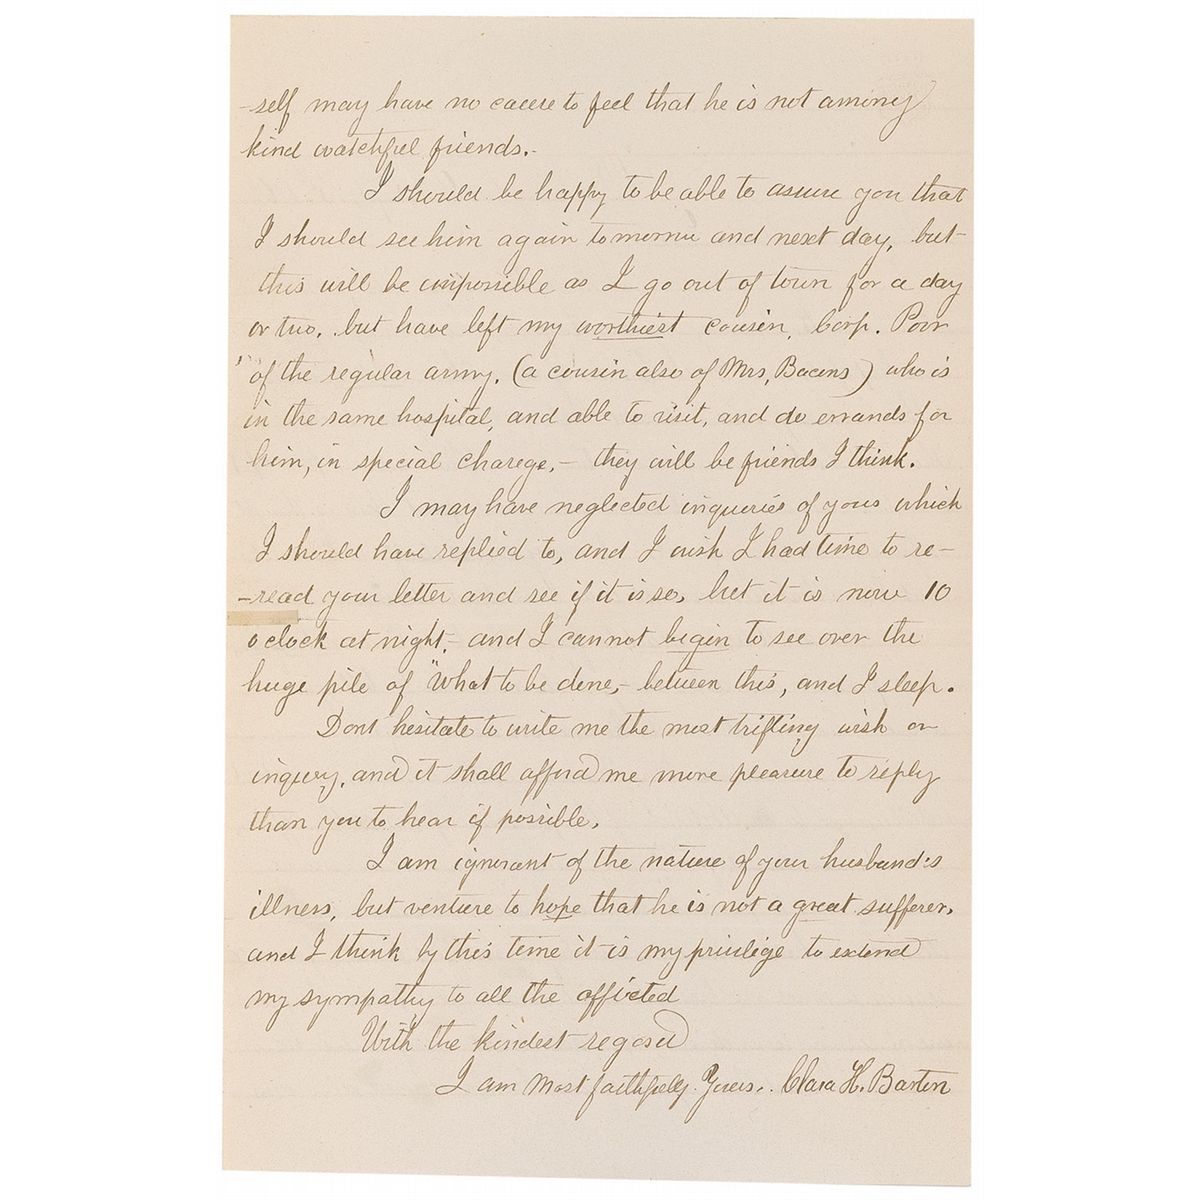 -self may have no cause to feel that he is not among
kind watchful friends.-
I should be happy to be able to assure you that
I should see him again tomorrow and next day, but
this will be impossible as I go out of town for a day
or two, but have left my worthiest cousin, Corp. Poor
of the regular army, (a cousin also of Mrs, Bacons) who is
in the same hospital, and able to visit, and do errands for
him, in special charege, - they will be friends I think.
I may have neglected inqueries of yours which
I should have replied to, and I wish I had time to re-
-read your letter and see if it is so, but it is now 10
oclock at night, - and I cannot begin to see over the
huge pile of "What to be done, - between this, and I sleep.
Dont hesitate to write me the most trifling wish or
inquiry, and it shall afford me more pleasure to reply
than you to hear if possible.
I am ignorant of the nature of your husband's
illness, but venture to hope that he is not a great sufferer,
and I think by this time it is my privilege to extend
my sympathy to all the afflicted
With the kindest regard
I am Most faithfully Yours,. Clara H. Barton